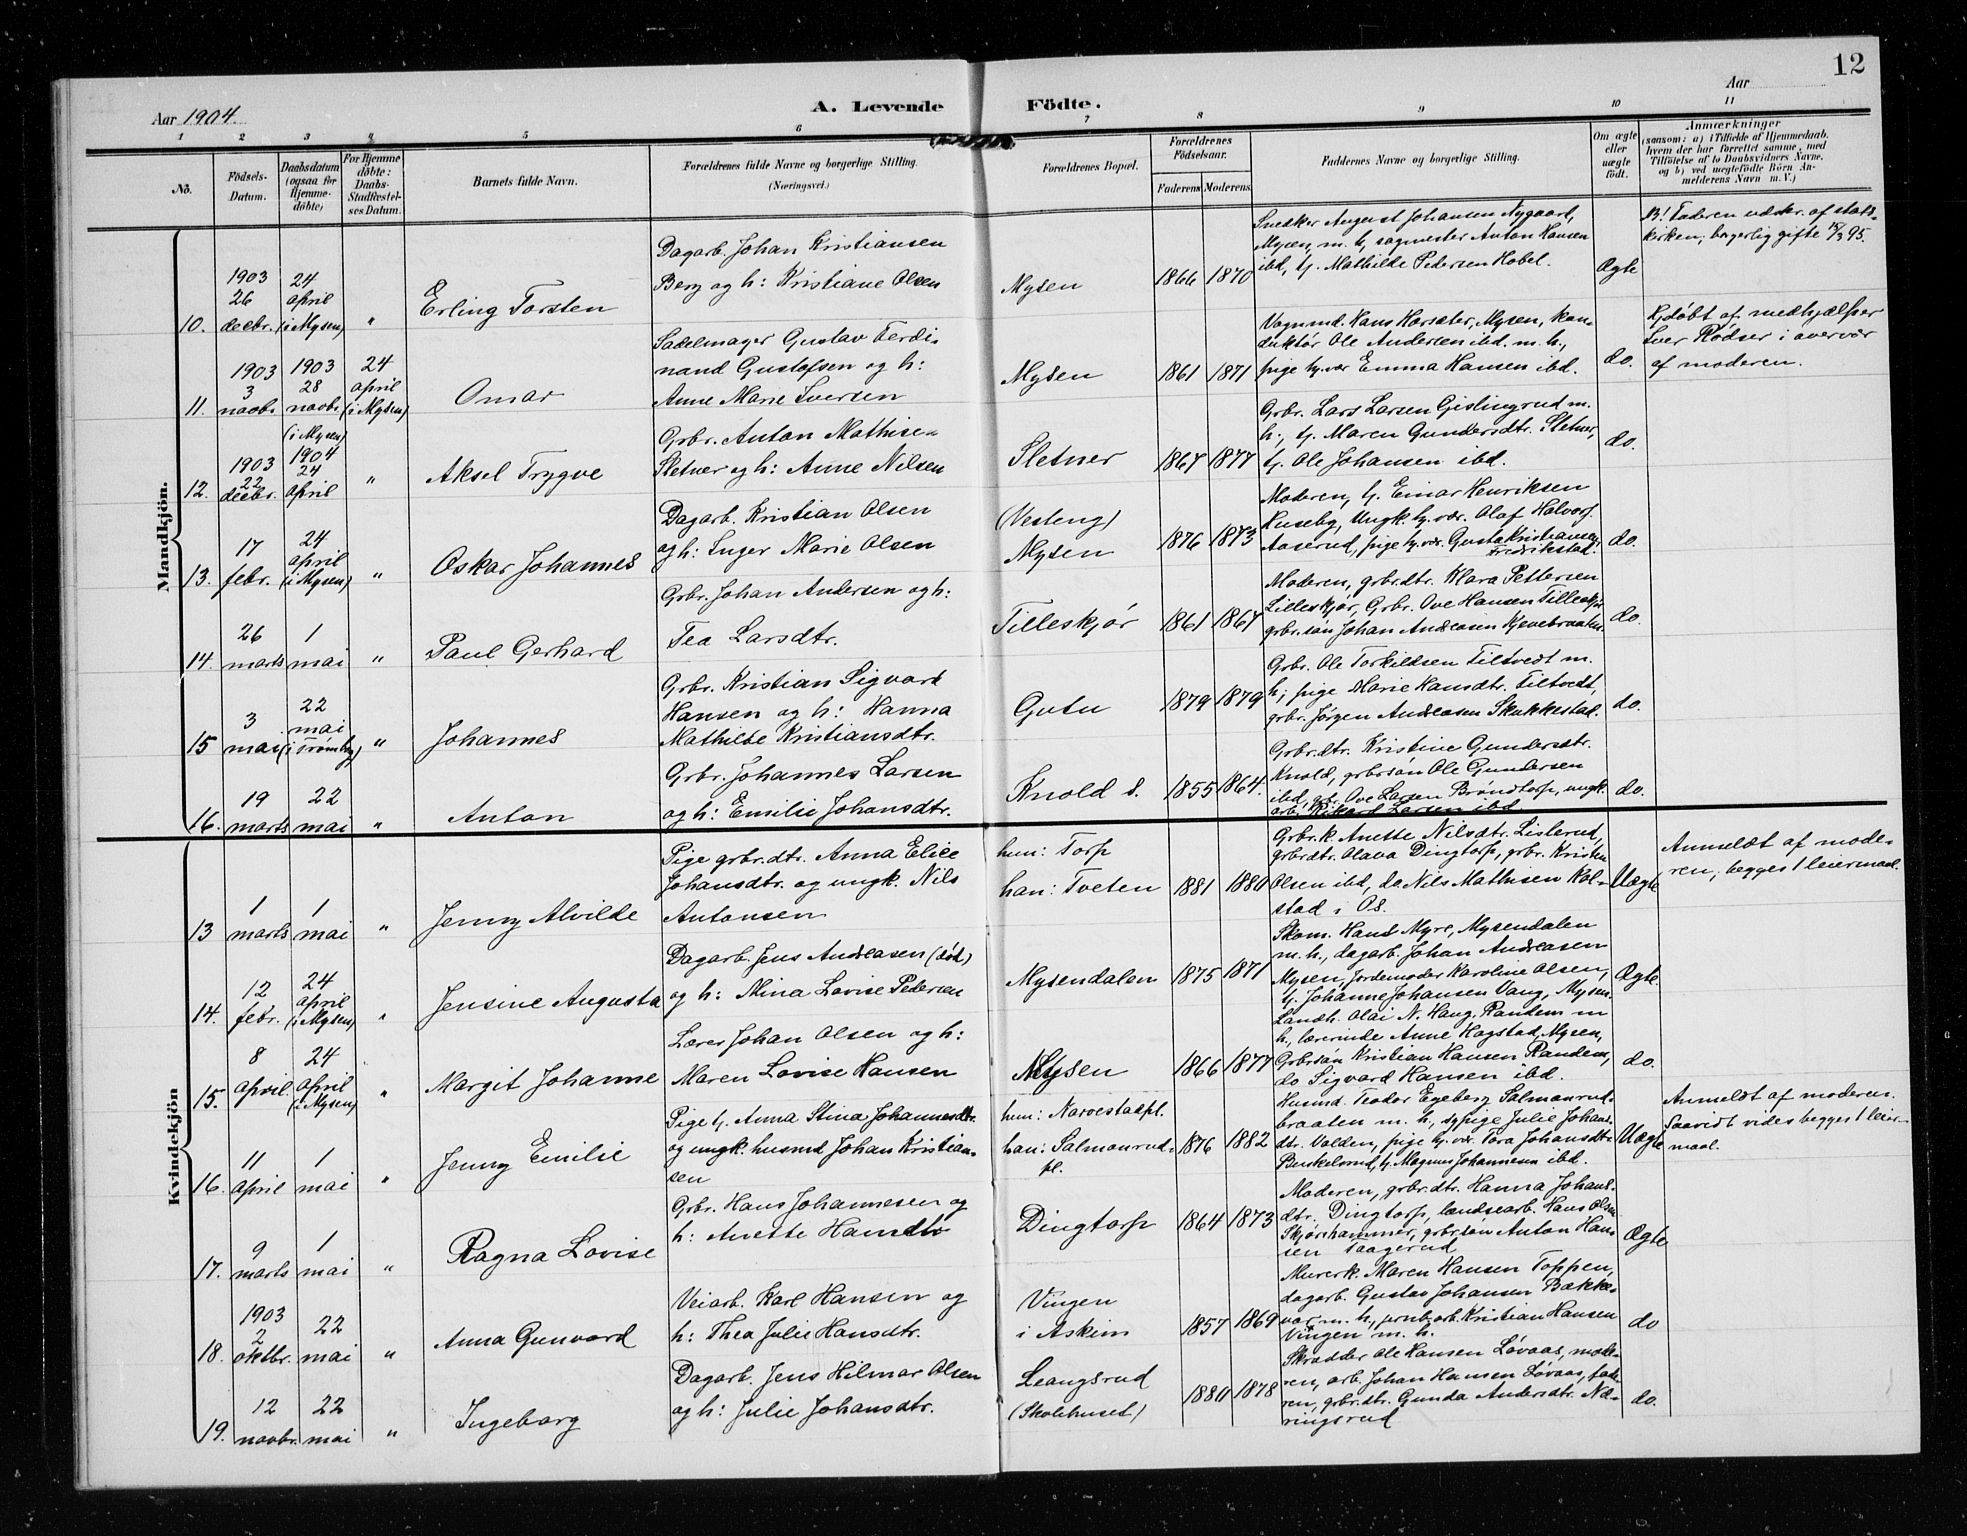 12
Aar 1904.
A. Levende Födte.
Aar
1 2 3 4 5 6 7 8 9 10 11
No.
Födsels-Datum.
Daabsdatum (ogsaa for Hjemme-döbte)
For Hjemme döbte: Daabs-Stadfæstel-ses Datum.
Barnets fulde Navn.
Forældrenes fulde Navne og borgerlige Stilling. (Næringsvei.)
Forældrenes Bopæl.
Forældrenes Födselsaar.
Faderens Moderens
Faddernes Navne og borgerlige Stilling.
Om ægte eller uægte födt.
Anmærkninger
(saasom: a) i Tilfælde af Hjemmedaab,
hvem der har forrettet samme, med
Tilföielse af to Daabsvidners Navne,
og b) ved uegtefödte Börn An-
melderens Navn m. V.)
Mandkjön.
10. 1903 26 decbr. 24 april (i Mysen) " Erling Torsten
Dagarb. Johan Kristiansen
Berg og h: Kristiane Olsen
Mysen 1866 1870
Snedker August Johansen Nygaard,
Mysen, m. h, sagmester Anton Hansen
ibd, g. Mathilde Pedersen Hobel.
Ægte
NB! Faderen udskr. af stats-
kirken; borgerlig gifte 15/3 95.
11. 1903 3 novbr. 1903 28 novbr. 24 april (i Mysen) Omar
Sadelmager Gustav Ferdi-
nand Gustafsen og h:
Anne Marie Iversen
Mysen 1861 1871
Vognmd. Hans Harsæter, Mysen, kon-
duktør Ole Andersen ibd. m. h.,
pige tj.vær Emma Hansen ibd.
do.
Hjdøbt af medhjælper
Iver Flødser i overvær
af moderen.
12. 1903 22 decbr. (i Mysen) 1904 24 april " Aksel Trygve
Grbr. Anton Mathise-
Sletner og h: Anne Nilsen
Sletner 1867 1877
Grbr. Lars Larsen Gislingrud m.
h., g. Maren Gundersdtr. Sletner,
g. Ole Johansen ibd.
do.
13. 17 febr. 24 april (i Mysen) " Oskar Johannes
Dagarb. Kristian Olsen
og h: Inger Marie Olsen
(Vesteng) Mysen 1876 1873
Moderen, g. Einar Henriksen
Huseby, Ungk. tj.vær. Olaf Halvors.
Aaserud, pige tj.vær. Gusta Kristiansen,
Fredrikstad.
do.
14. 26 marts 1 mai " Paul Gerhard
Grbr. Johan Andersen og h:
Tea Larsdtr.
Tilleskjør 1861 1867
Moderen, grbr.dtr. Klara Pettersen
Lilleskjør, Grbr. Ove Hansen Tilleskjør
grbr.søn Johan Andreasen Kjenebraaten.
do.
15 3 mai 22 mai (i Trømborg) " Johannes
Grbr. Kristian Sigvard
Hansen og h: Hanna
Mathilde Kristiansdtr.
Gutu 1879 1879
Grbr. Ole Torkildsen Tiltvedt m.
h; pige Marie Hansdtr. Tiltvedt,
grbr. Jørgen Andreasen Skukkestad.
do.
16. 19 marts 22 mai " Anton
Grbr. Johannes Larsen
og h: Emilie Johansdtr.
Knold s. 1855 1864.
Grbr.dtr. Kristine Gundersdtr.
Knold, grbrsøn Ole Gundersen
ibd, gb. Ove Larsen Brøndtorp, ungk.
arb. Rikard Larsen ibd
do.
Kvindekjön
13 1 marts 1 mai " Jenny Alvilde
Pige grbr.dtr. Anna Elise
Johansdtr. og ungk. Nils
Antonsen
hun: Torp
han: Tveten 1881 1880
Grbr.k. Anette Nilsdtr. Listerud,
grbrdtr. Olava Dingtorp, grbr. Kristen
Olsen ibd, do Nils Mathisen Kol-
stad i Os.
Uægte
Anmeldt af mode-
ren; begges 1 leiermaal.
14. 12 febr. 24 april (i Mysen) " Jensine Augusta
Dagarb. Jens Andreasen (død)
og h: Mina Lovise Pedersen
Mysendalen 1875 1871
Skom. Hans Myre, Mysendalen
m. h., dagarb. Johan Andreasen
Mysen, Jordemoder Karoline Olsen,
g. Johanne Johansen Vang, Mysen.
Ægte.
15. 8 april. 24 april (i Mysen) " Margit Johanne
Lærer Johan Olsen og h:
Maren Lovise Hansen
Mysen 1866 1877
Landh. Olai N. Haug, Randem m
h., lærerinde Anne Hagstad, Mysen,
Grbrsøn Kristian Hansen Randem,
do Sigvard Hansen ibd.
do.
16. 11 april 1 mai " Jenny Emilie
Pige g. Anna Stina Johannesdtr.
og ungk. husmd Johan Kristian-
sen
hun: Narvestadpl.
han: Salmonrud-
pl. 1876 1882
Husmd. Teodor Egeberg Salmonrud-
braaten m. h, sypige Julie Johans-
dtr. Volden, pige tj.vær. Tora Johansdtr
Buskelsrud, g. Magnus Johannesen ibd.
Uægte
Anmeldt af moderen.
Saavidt vides begges 1 leier-
maal.
17. 9 marts 1 mai " Ragna Lovise
Grbr. Hans Johannesen og
h: Anette Hansdtr
Dingtorp 1864 1873
Moderen, grbr.dtr. Hanna Johans-
dtr. Dingtorp, landsearb. Hans Olsen
Skjørshammer, grbr.søn Anton Han-
sen Taagerud
Ægte
18. 1903 2 oktbr. 22 mai " Anna Gunvord
Veiarb. Karl Hansen og
h: Thea Julie Hansdtr.
Vingen
i Askim 1857 1869
Murerk. Maren Hansen Toppen,
dagarb. Gustav Johansen Bække-
var m. h, jernb.arb. Kristian Hansen
Vingen m. h.
do
19. 12 novbr. 22 mai " Ingeborg
Dagarb. Jens Hilmar Olsen
og h: Julie Johansdtr.
Leangsrud
(Skolehuset) 1880 1878
Skrædder Ole Hansen Løvaas, mode-
ren, arb. Johan Hansen Løvaas, fade-
ren, grbr.dtr. Gunda Andersdtr. Næ-
ringsrud
do.